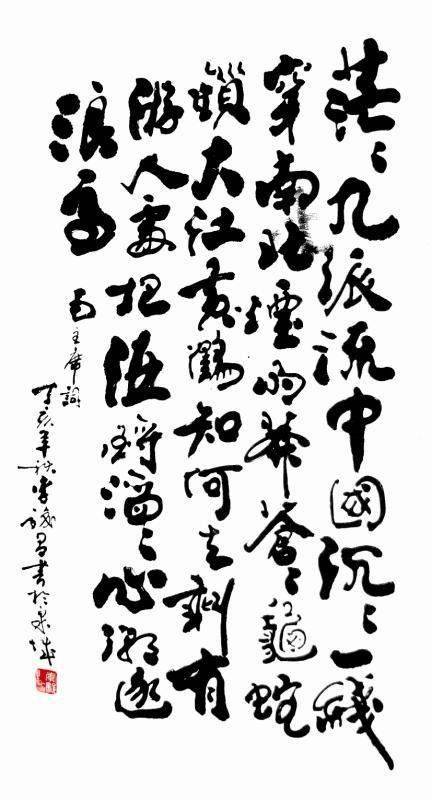 茫〻九派流中國沉〻一綫
穿南北煙雨莽蒼〻龜蛇
鎖大江黃鶴知何去剩有
游人處把酒酹滔〻心潮逐
浪高
毛主席詞
丁亥年秋李昌書於城